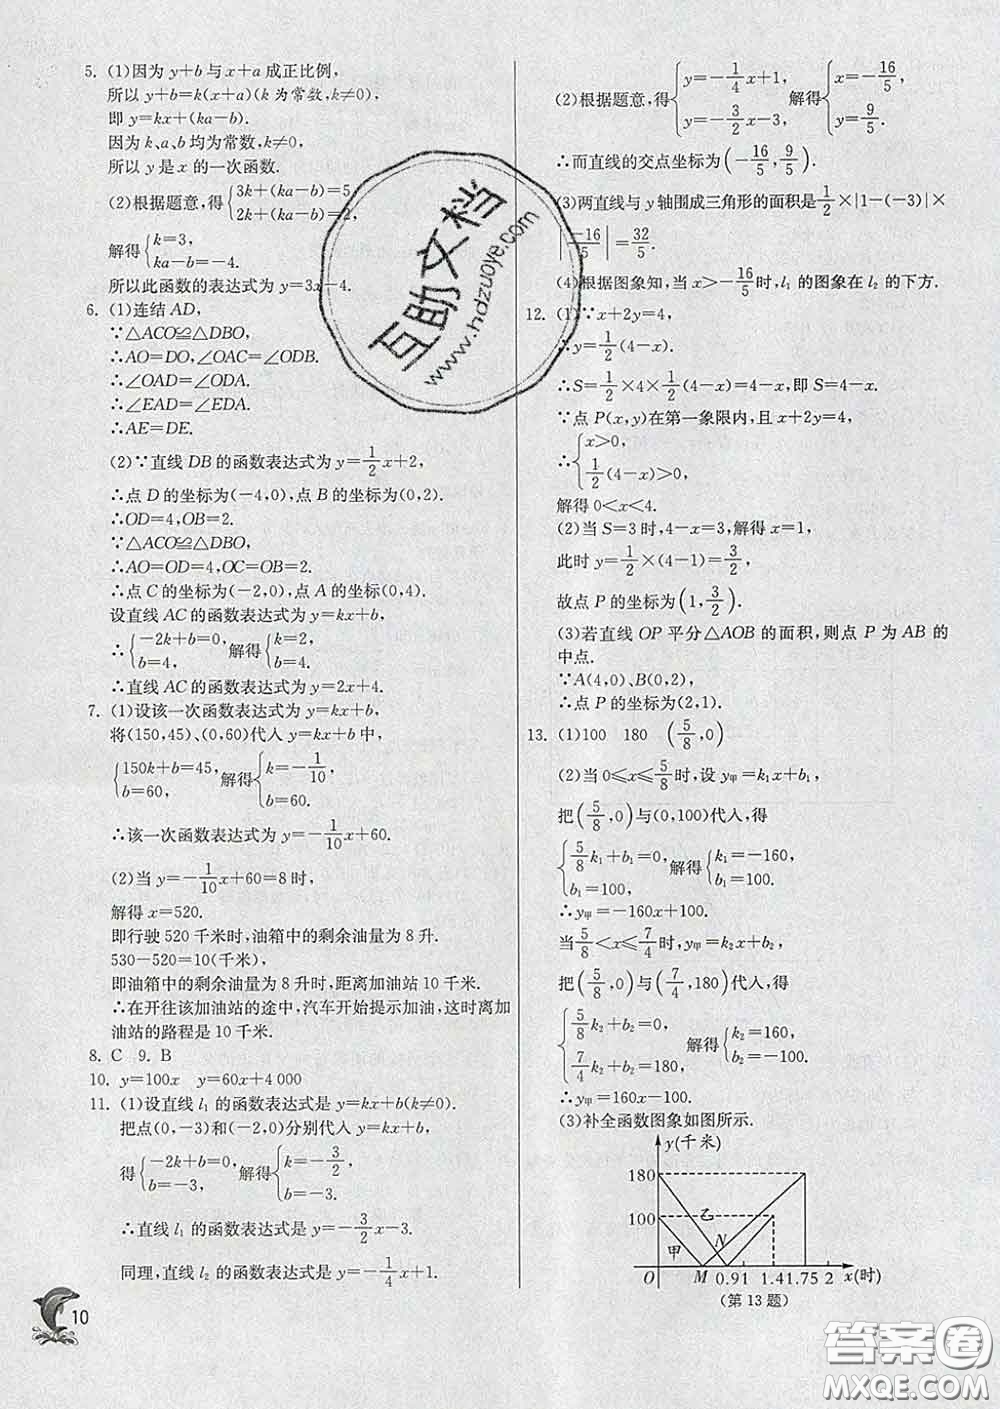 5. (1)因为 y+b 与 x+a 成正比例,
所以 y+b=k(x+a)(k 为常数,k≠0),
即 y=kx+(ka-b).
因为 k、a、b 均为常数,k≠0,
所以 y 是 x 的一次函数.
(2)根据题意,得{3k+(ka-b)=5,
2k+(ka-b)=2,
解得{k=3,
ka-b=-4.
所以此函数的表达式为 y=3x-4.
6. (1)连结 AD,
∵△ACO≌△DBO,
∴AO=DO,∠OAC=∠ODB.
∴∠OAD=∠ODA.
∴∠EAD=∠EDA.
∴AE=DE.
(2)∵直线 DB 的函数表达式为 y=1/2x+2,
∴点 D 的坐标为(-4,0),点 B 的坐标为(0,2).
∴OD=4,OB=2.
∵△ACO≌△DBO,
∴AO=OD=4,OC=OB=2.
∴点 C 的坐标为(-2,0),点 A 的坐标为(0,4).
设直线 AC 的函数表达式为 y=kx+b,
∴{-2k+b=0, b=4, 解得{k=2, b=4.
∴直线 AC 的函数表达式为 y=2x+4.
7. (1)设该一次函数表达式为 y=kx+b,
将(150,45)、(0,60)代入 y=kx+b 中,
{150k+b=45, b=60, 解得{k=-1/10, b=60.
∴该一次函数表达式为 y=-1/10x+60.
(2)当 y=-1/10x+60=8 时,
解得 x=520.
即行驶 520 千米时,油箱中的剩余油量为 8 升.
530-520=10(千米),
即油箱中的剩余油量为 8 升时,距离加油站 10 千米.
∴在开往该加油站的途中,汽车开始提示加油,这时离加
油站的路程是 10 千米.
8. C 9. B
10. y=100x y=60x+4 000
11. (1)设直线 l₁ 的函数表达式是 y=kx+b(k≠0).
把点(0,-3)和(-2,0)分别代入 y=kx+b,
得{-2k+b=0, b=-3, 解得{k=-3/2, b=-3.
∴直线 l₁ 的函数表达式是 y=-3/2x-3.
同理,直线 l₂ 的函数表达式是 y=-1/4x+1.
10
(2)根据题意,得{y=-1/4x+1, y=-3/2x-3, 解得{x=-16/5, y=9/5.
∴而直线的交点坐标为(-16/5,9/5).
(3)两直线与 y 轴围成三角形的面积是1/2×|1-(-3)|×
|-16/5|=32/5.
(4)根据图象知,当 x>-16/5时,l₁ 的图象在 l₂ 的下方.
12. (1)∵x+2y=4,
∴y=1/2(4-x).
∴S=1/2×4×1/2(4-x)=4-x,即 S=4-x.
∵点 P(x,y)在第一象限内,且 x+2y=4,
∴{x>0, 1/2(4-x)>0,
解得 0<x<4.
(2)当 S=3 时,4-x=3,解得 x=1,
此时 y=1/2×(4-1)=3/2,
故点 P 的坐标为(1,3/2).
(3)若直线 OP 平分△AOB 的面积,则点 P 为 AB 的
中点.
∵A(4,0)、B(0,2),
∴点 P 的坐标为(2,1).
13. (1)100 180 (5/8,0)
(2)当 0≤x≤5/8时,设 y甲=k₁x+b₁,
把(5/8,0)与(0,100)代入,得
{5/8k₁+b₁=0, b₁=100, 解得{k₁=-160, b₁=100.
∴y甲=-160x+100.
当5/8<x≤7/4时,y甲=k₂x+b₂,
把(5/8,0)与(7/4,180)代入,得
{5/8k₂+b₂=0, 7/4k₂+b₂=180, 解得{k₂=160, b₂=-100.
∴y甲=160x-100.
(3)补全函数图象如图所示.
y(千米)
180
100
乙
甲 N
O M 0.91 1.41.75 2 x(时)
(第 13 题)
互助文档
www.hdzuoye.com
答案圈
MXQE.COM